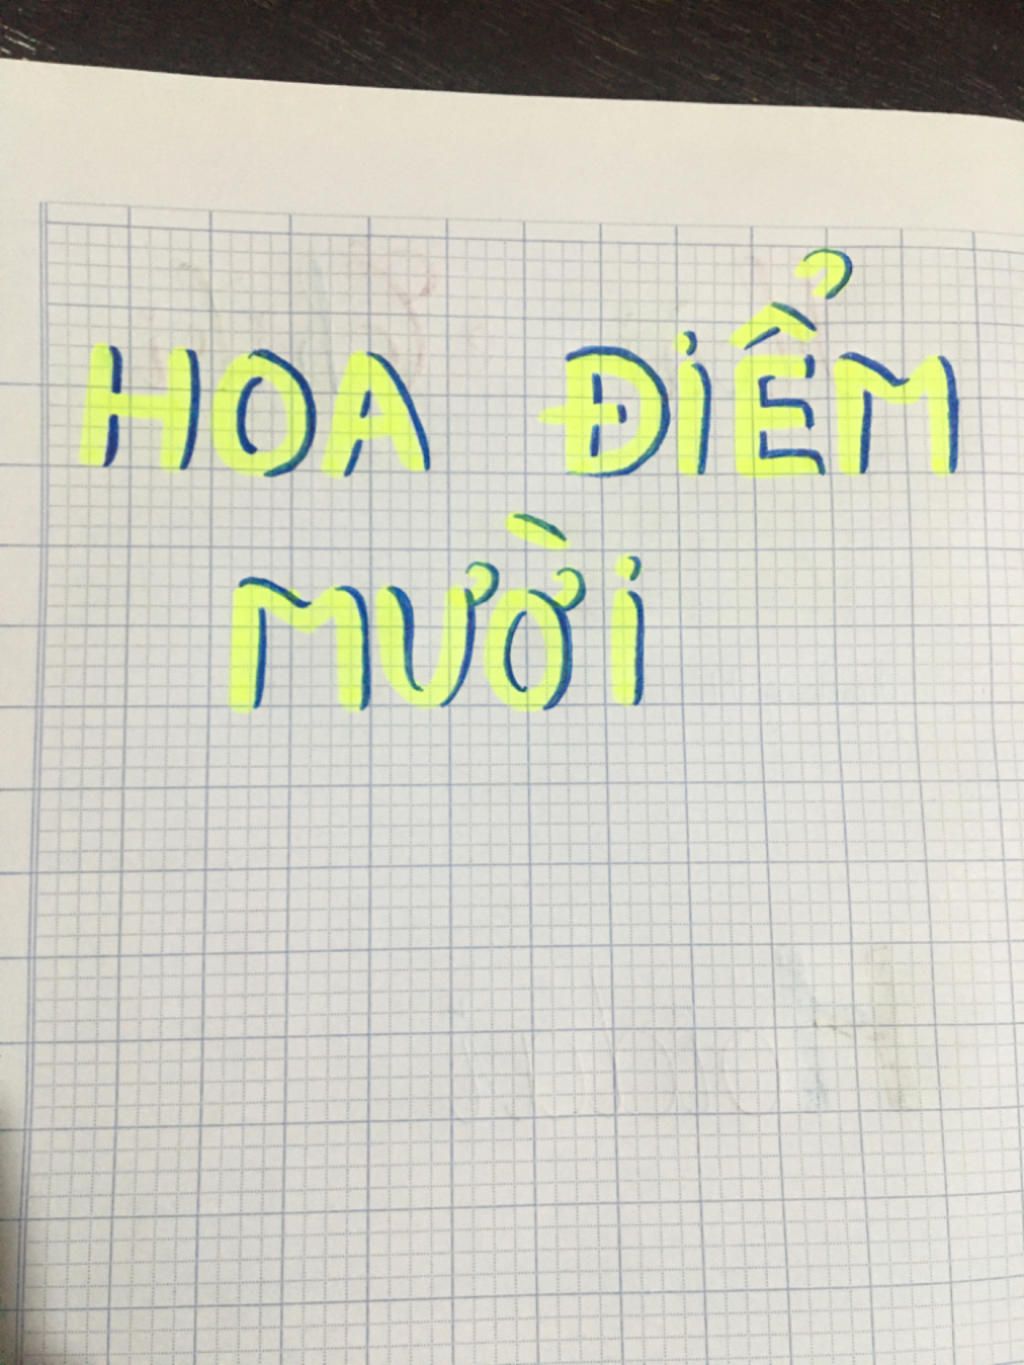 HOA ĐiỂM
MƯỜi